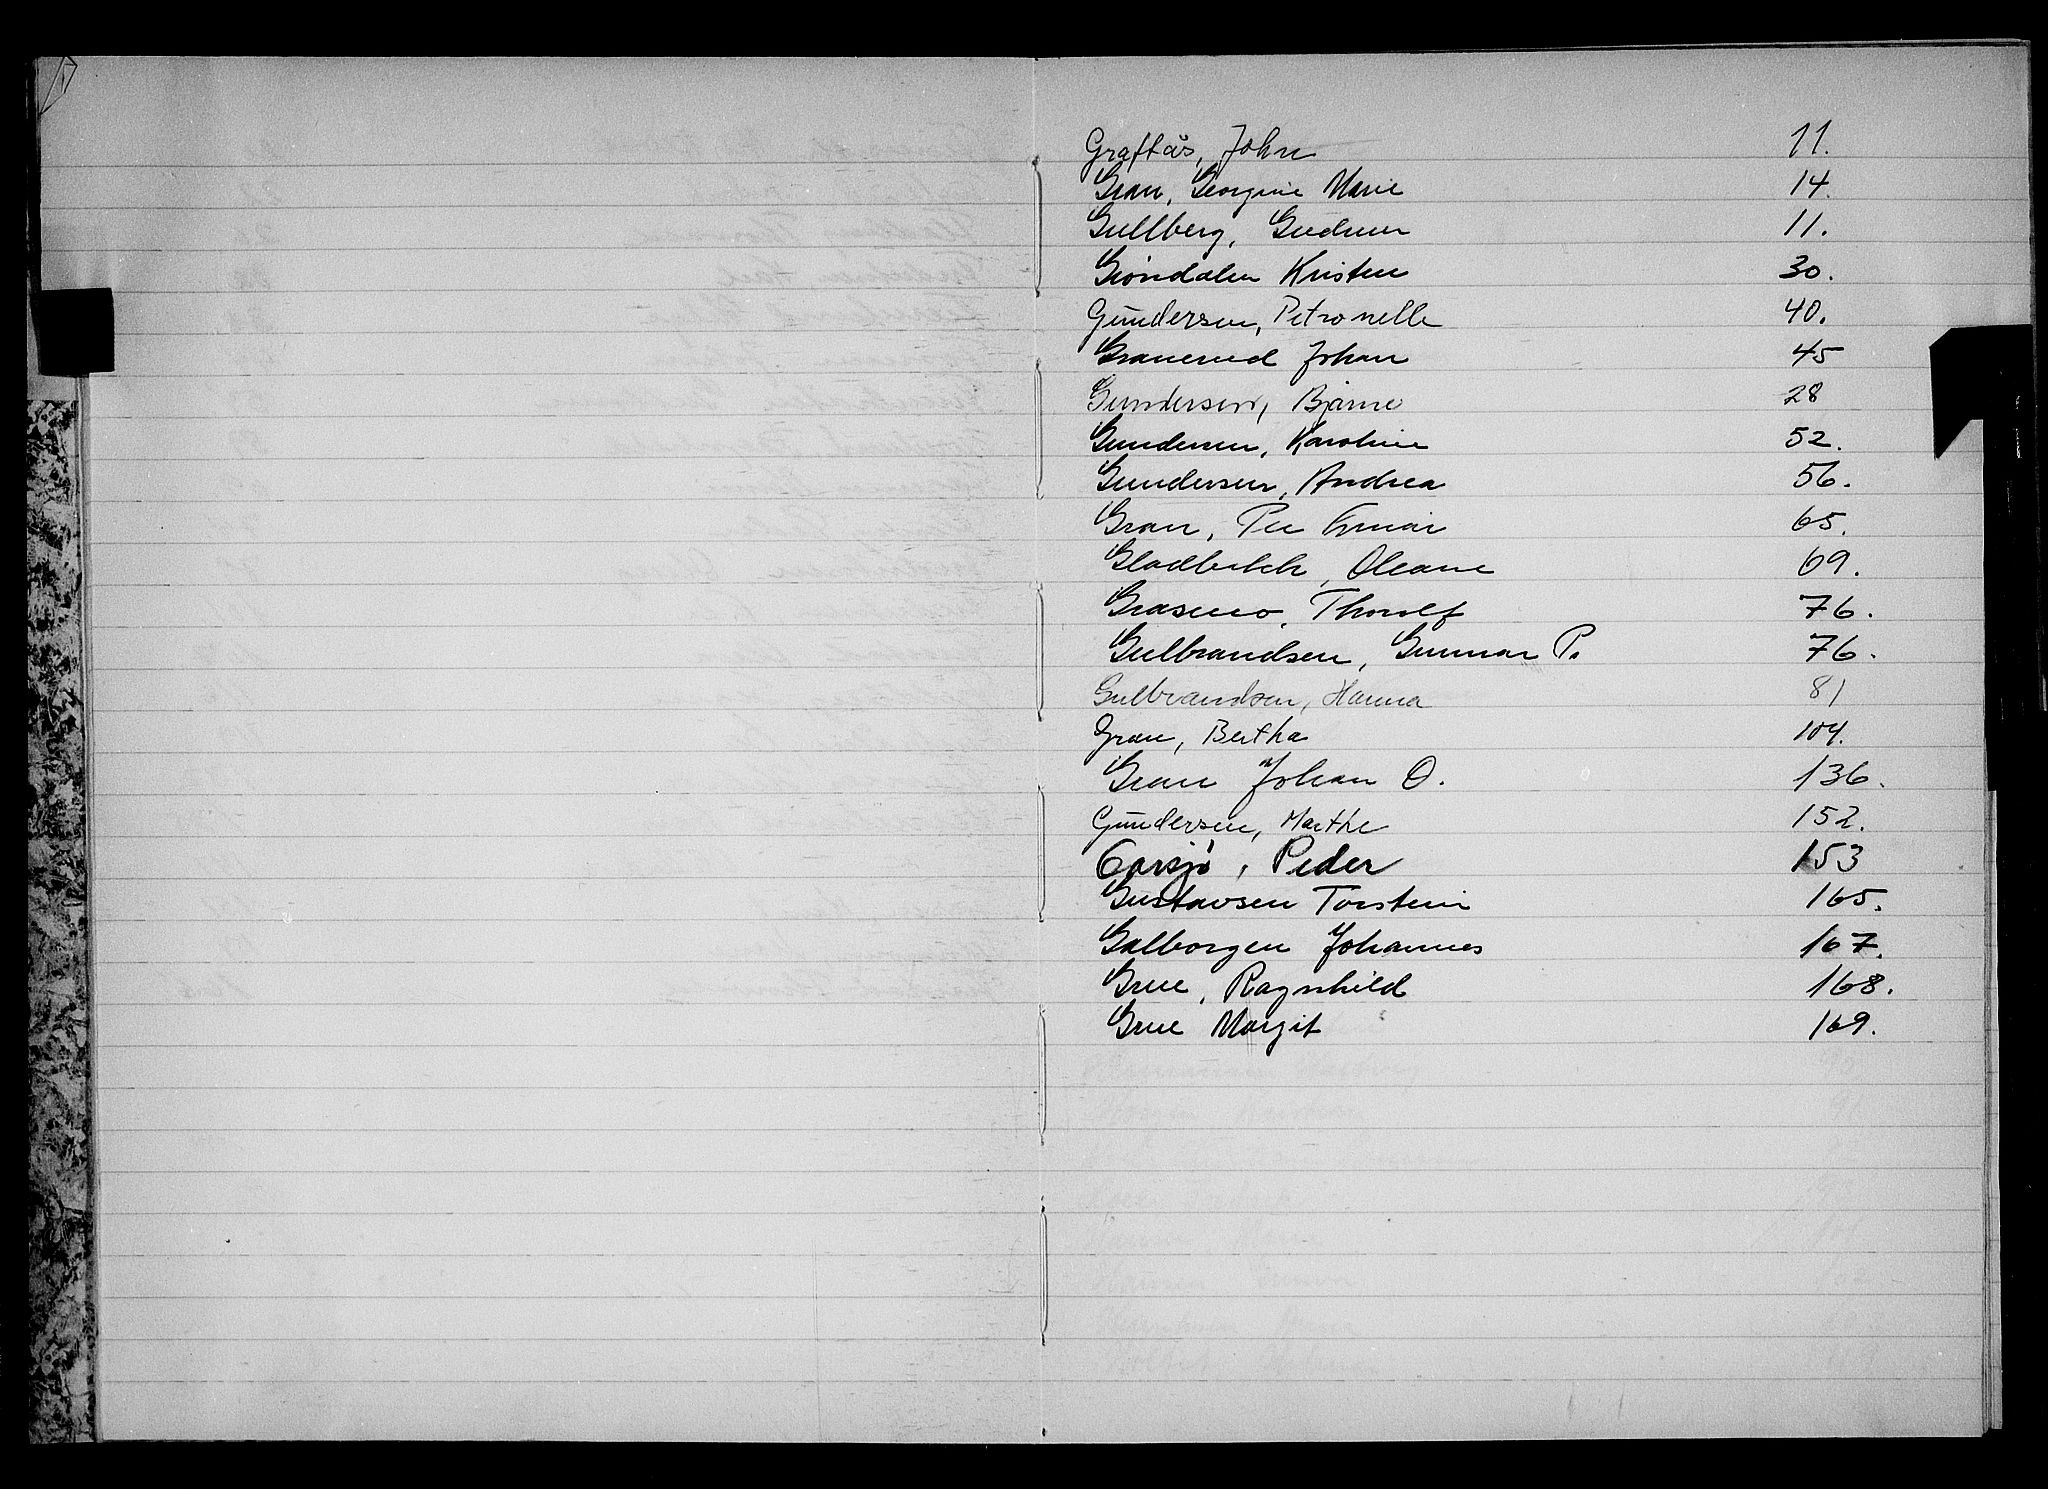 Graftås, John 11.
Gran, Georgine Marie 14.
Gullberg, Gudrun 11.
Grøndalen Kristen 30.
Gundersen, Petronelle 40.
Granerud Johan 45
Gundersen, Bjarne 28
Gundersen, Karoline 52.
Gundersen, Andrea 56.
Gran, Per Einar 65.
Gladbakk, Oleane 69.
Grasmo, Thorolf 76.
Gulbrandsen, Gunnar P. 76.
Gulbrandsen, Hanna 81
Gran, Bertha 104.
Gran Johan O. 136.
Gundersen, Marthe 152.
Garsjø, Peder 153
Gustavsen Torstein 165.
Galborgen Johannes 167.
Grue, Ragnhild 168.
Grue Margit 169.